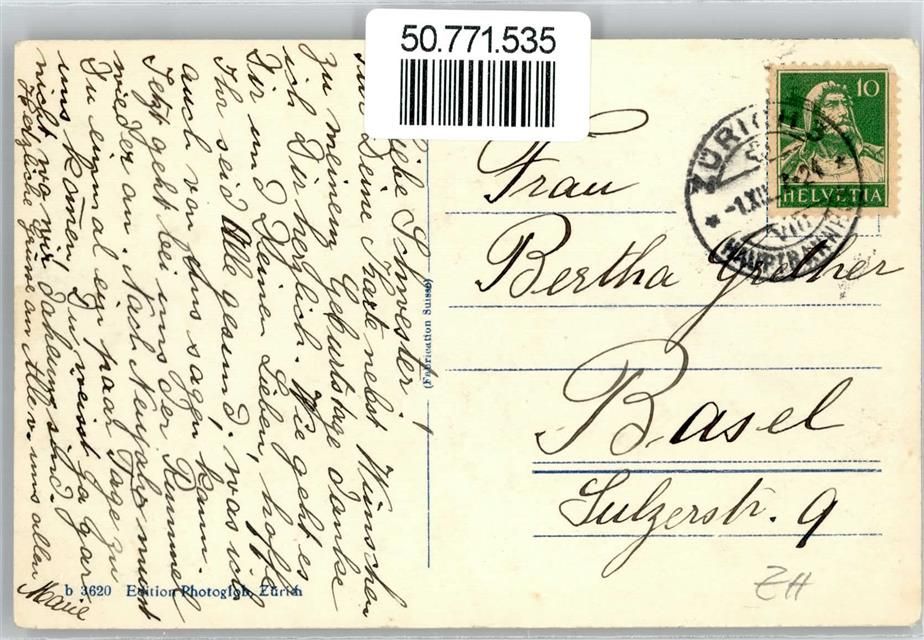 50.771.535
10
HELVETIA
ZÜRICH
-1.XII.
24
VIII
HAUPTBAHNHOF
Frau
Bertha Grether
Basel
Sulzerstr. 9
ZH
(Fabrication Suisse)
b 3620 Edition Photoglob, Zürich
Liebe Schwester!
Für Deine Karte nebst Wünschen
zu meinem Geburtstage danke
ich Dir herzlich. Wie geht es
Dir und Deinen Lieben, hoffe
Ihr seid Alle gesund, was ich
auch von uns sagen kann.
Jetzt geht bei uns der Rummel
wieder an. Nach Neujahr musst
Du einmal ein paar Tage zu
uns kommen, Du weist ja gar
nicht, wo wir daheim sind.
Herzliche Grüsse an Alle v. uns allen
Marie